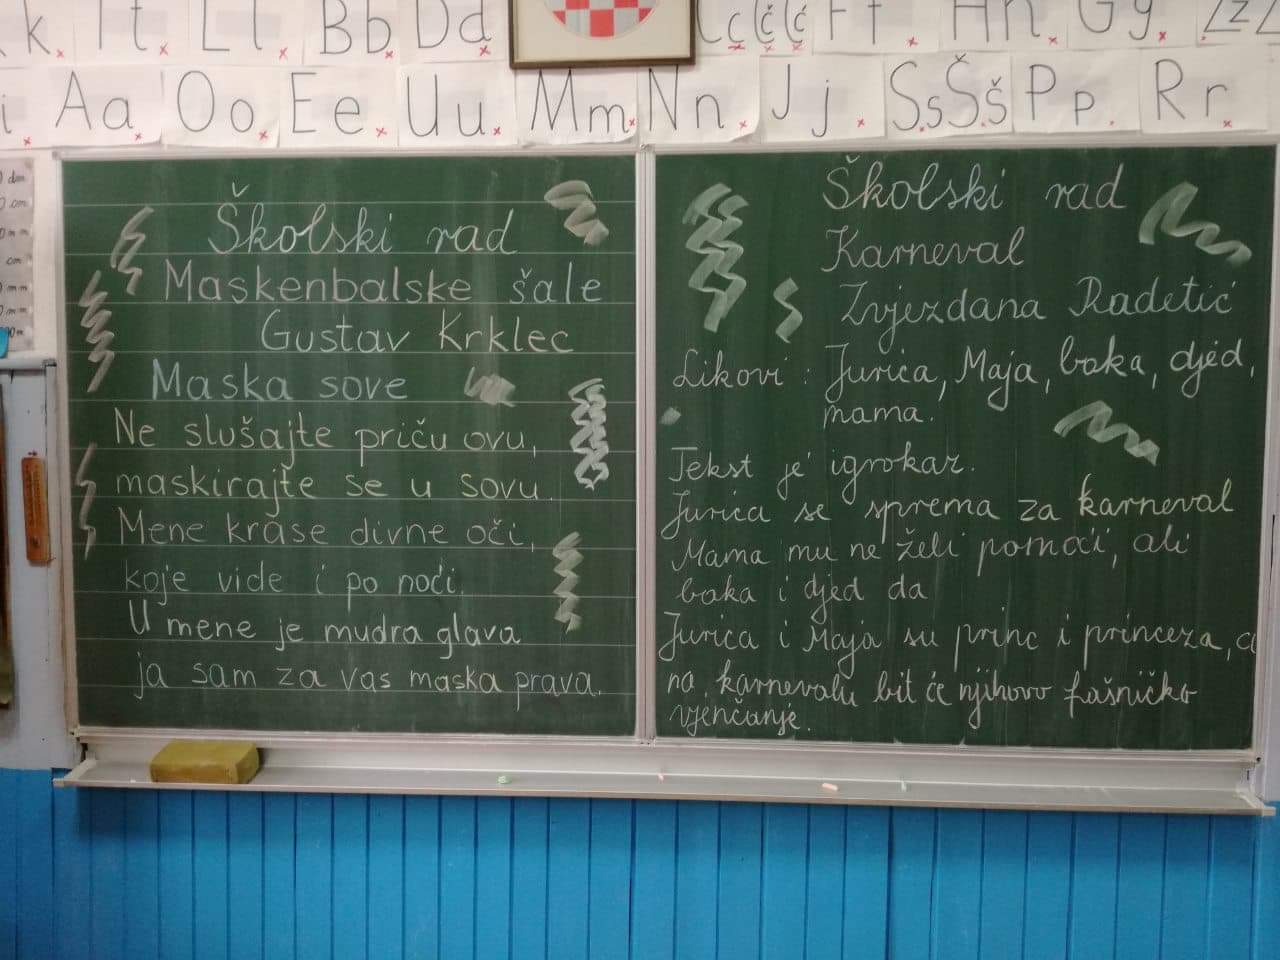 k. It. Ll. Bb. Dd. Cc Čč Ćć Ff. Hh. Gg. Zz
i. Aa. Oo. Ee. Uu. Mm. Nn. Jj. Ss Šš Pp. Rr.
dm
cm
mm
cm
mm
mm
Školski rad
Maskenbalske šale
Gustav Krklec
Maska sove
Ne slušajte priču ovu,
maskirajte se u sovu.
Mene krase divne oči,
koje vide i po noći.
U mene je mudra glava
ja sam za vas maska prava.
Školski rad
Karneval
Zvjezdana Radetić
Likovi: Jurica, Maja, baka, djed,
mama.
Tekst je igrokaz.
Jurica se sprema za karneval
Mama mu ne želi pomoći, ali
baka i djed da
Jurica i Maja su princ i princeza, a
na karnevalu bit će njihovo fašničko
vjenčanje.